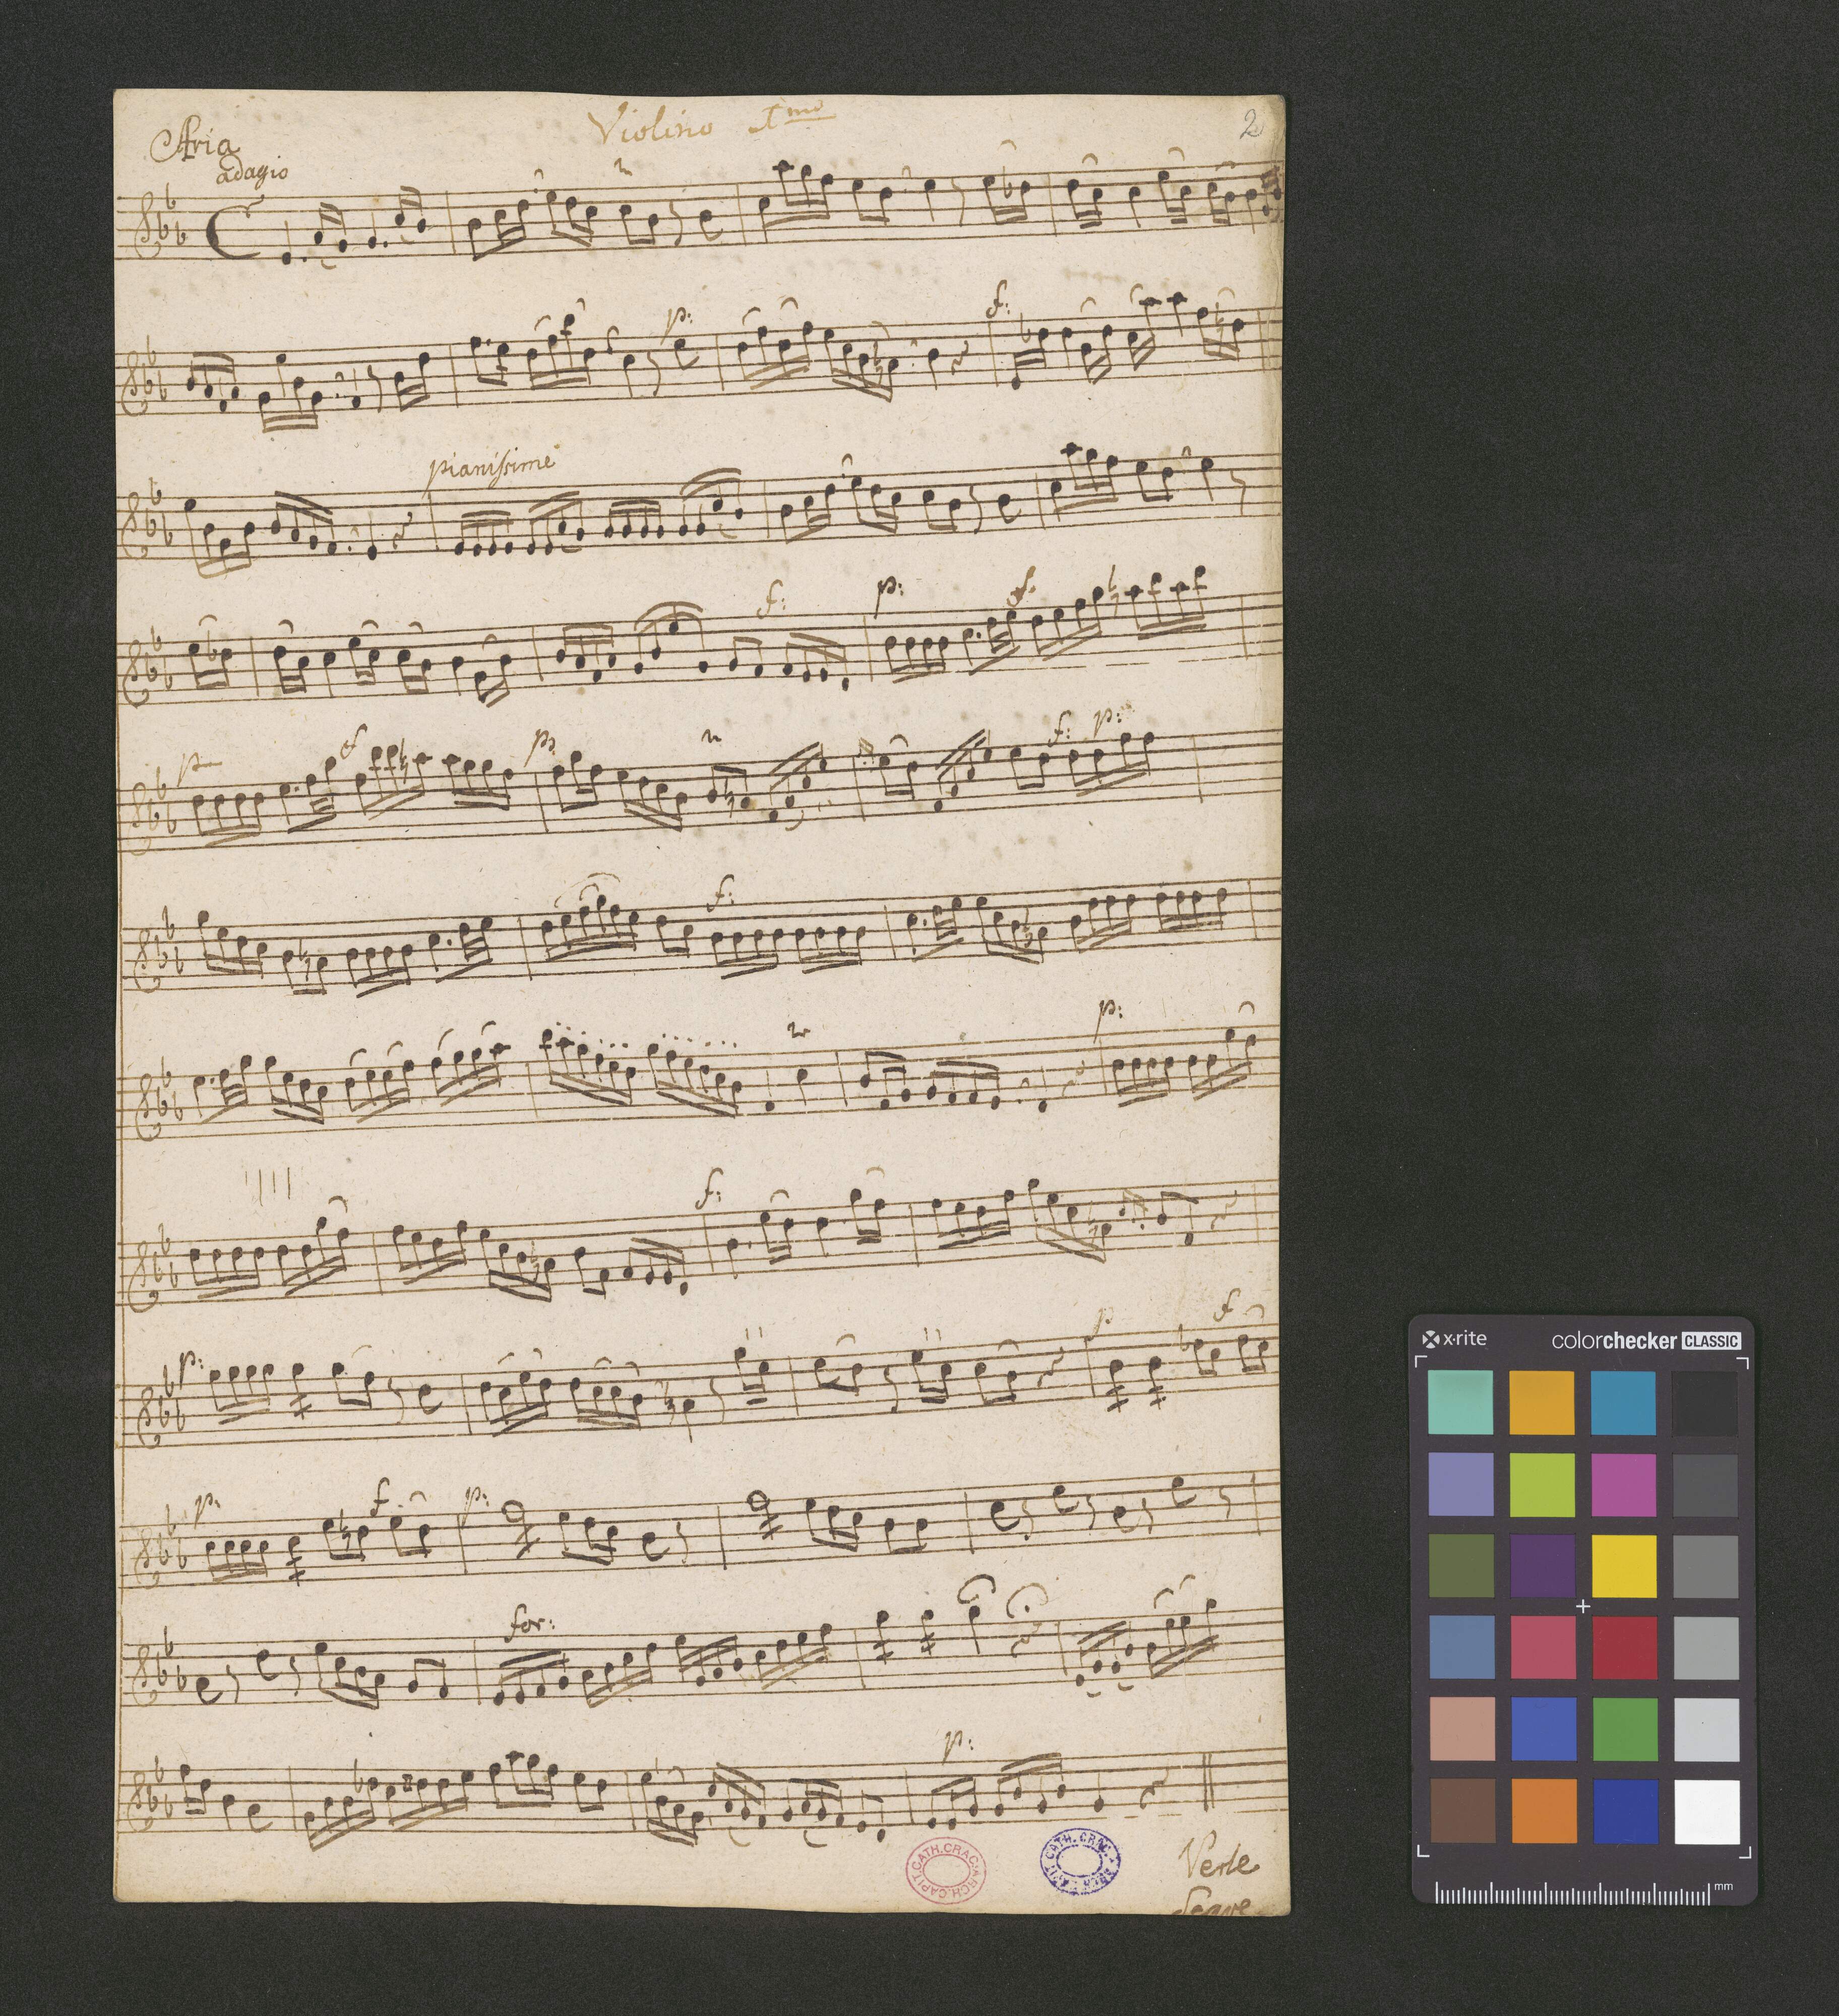 Violino Imo
2
Aria
adagio
p: f:
pianissime
f: p: f.
p f p: f: p:
f:
p:
f:
p: p f
p: f. p:
for:
p:
ARCH. CAPIT. CATH. CRAC.
ARCH. CAPIT. CATH. CRAC.
Verte
x-rite colorchecker CLASSIC
mm